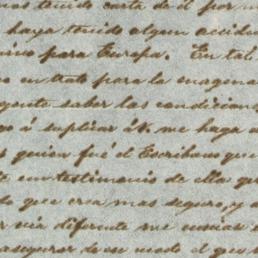 mas tenido carta de él por m
haya tenido algun accide
para Europa. En tal
en trato para la enagena
gente saber las condicione
á suplicar á V. me haga e
quien fué el Escribano que
te un testimonio de ella qu
lo que crea mas seguro, y d
r via diferente me envias o
asegurar de ese modo el que n